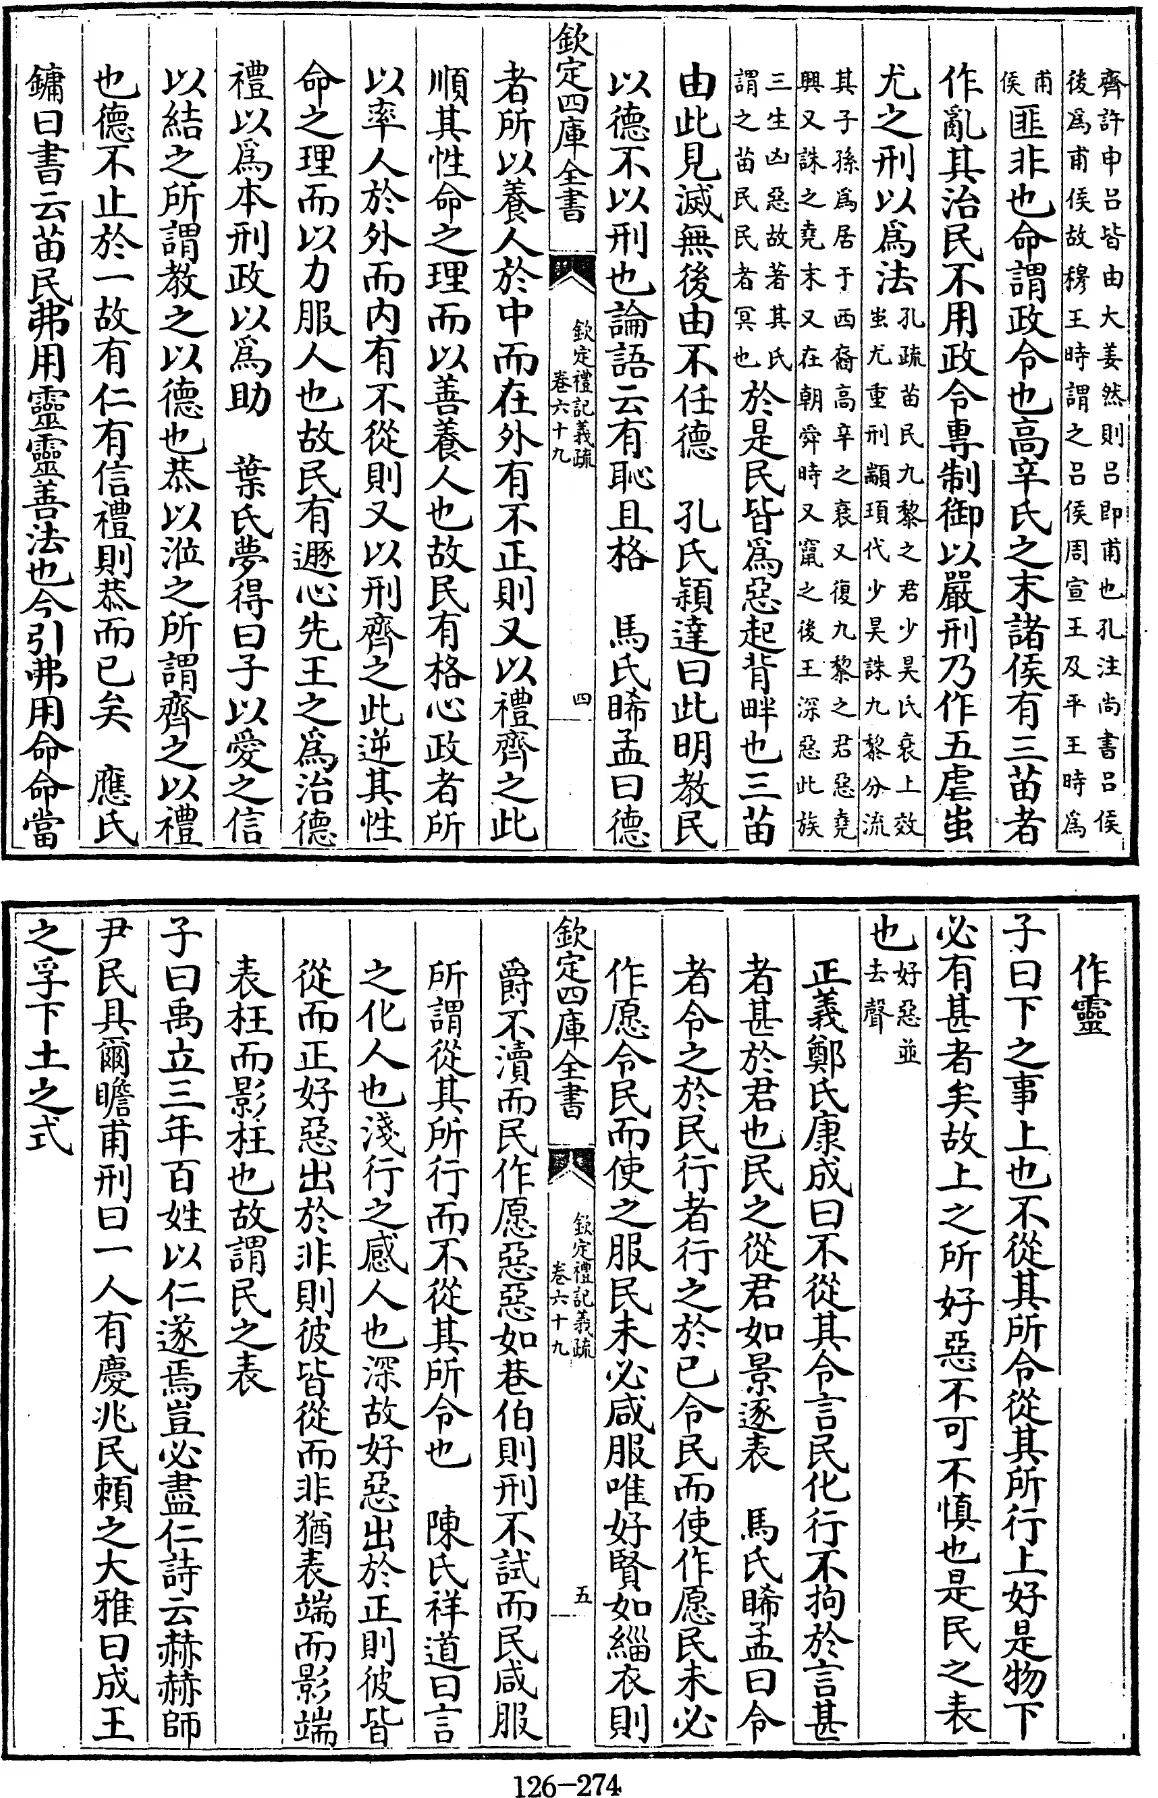 齊許申呂皆由大姜然則呂即甫也孔注尚書呂侯
後爲甫侯故穆王時謂之呂侯周宣王及平王時爲
甫
侯
匪非也命謂政令也高辛氏之末諸侯有三苗者
作亂其治民不用政令專制御以嚴刑乃作五虐蚩
尤之刑以爲法
孔疏苗民九黎之君少昊氏衰上效
蚩尤重刑顓頊代少昊誅九黎分流
其子孫爲居于西裔高辛之衰又復九黎之君惡堯
興又誅之堯末又在朝舜時又竄之後王深惡此族
三生凶惡故著其氏
謂之苗民民者冥也
於是民皆爲惡起背畔也三苗
由此見滅無後由不任德　孔氏穎達曰此明教民
以德不以刑也論語云有恥且格　馬氏睎孟曰德
欽定四庫全書
欽定禮記義疏
卷六十九
四
者所以養人於中而在外有不正則又以禮齊之此
順其性命之理而以善養人也故民有格心政者所
以率人於外而内有不從則又以刑齊之此逆其性
命之理而以力服人也故民有遯心先王之爲治德
禮以爲本刑政以爲助　葉氏夢得曰子以愛之信
以結之所謂教之以德也恭以涖之所謂齊之以禮
也德不止於一故有仁有信禮則恭而已矣　應氏
鏞曰書云苗民弗用靈靈善法也今引弗用命命當
作靈
子曰下之事上也不從其所令從其所行上好是物下
必有甚者矣故上之所好惡不可不慎也是民之表
也
好惡並
去聲
正義鄭氏康成曰不從其令言民化行不拘於言甚
者甚於君也民之從君如景逐表　馬氏睎孟曰令
者令之於民行者行之於已令民而使作愿民未必
作愿令民而使之服民未必咸服唯好賢如緇衣則
欽定四庫全書
欽定禮記義疏
卷六十九
五
爵不瀆而民作愿惡惡如巷伯則刑不試而民咸服
所謂從其所行而不從其所令也　陳氏祥道曰言
之化人也淺行之感人也深故好惡出於正則彼皆
從而正好惡出於非則彼皆從而非猶表端而影端
表枉而影枉也故謂民之表
子曰禹立三年百姓以仁遂焉豈必盡仁詩云赫赫師
尹民具爾瞻甫刑曰一人有慶兆民賴之大雅曰成王
之孚下土之式
126-274